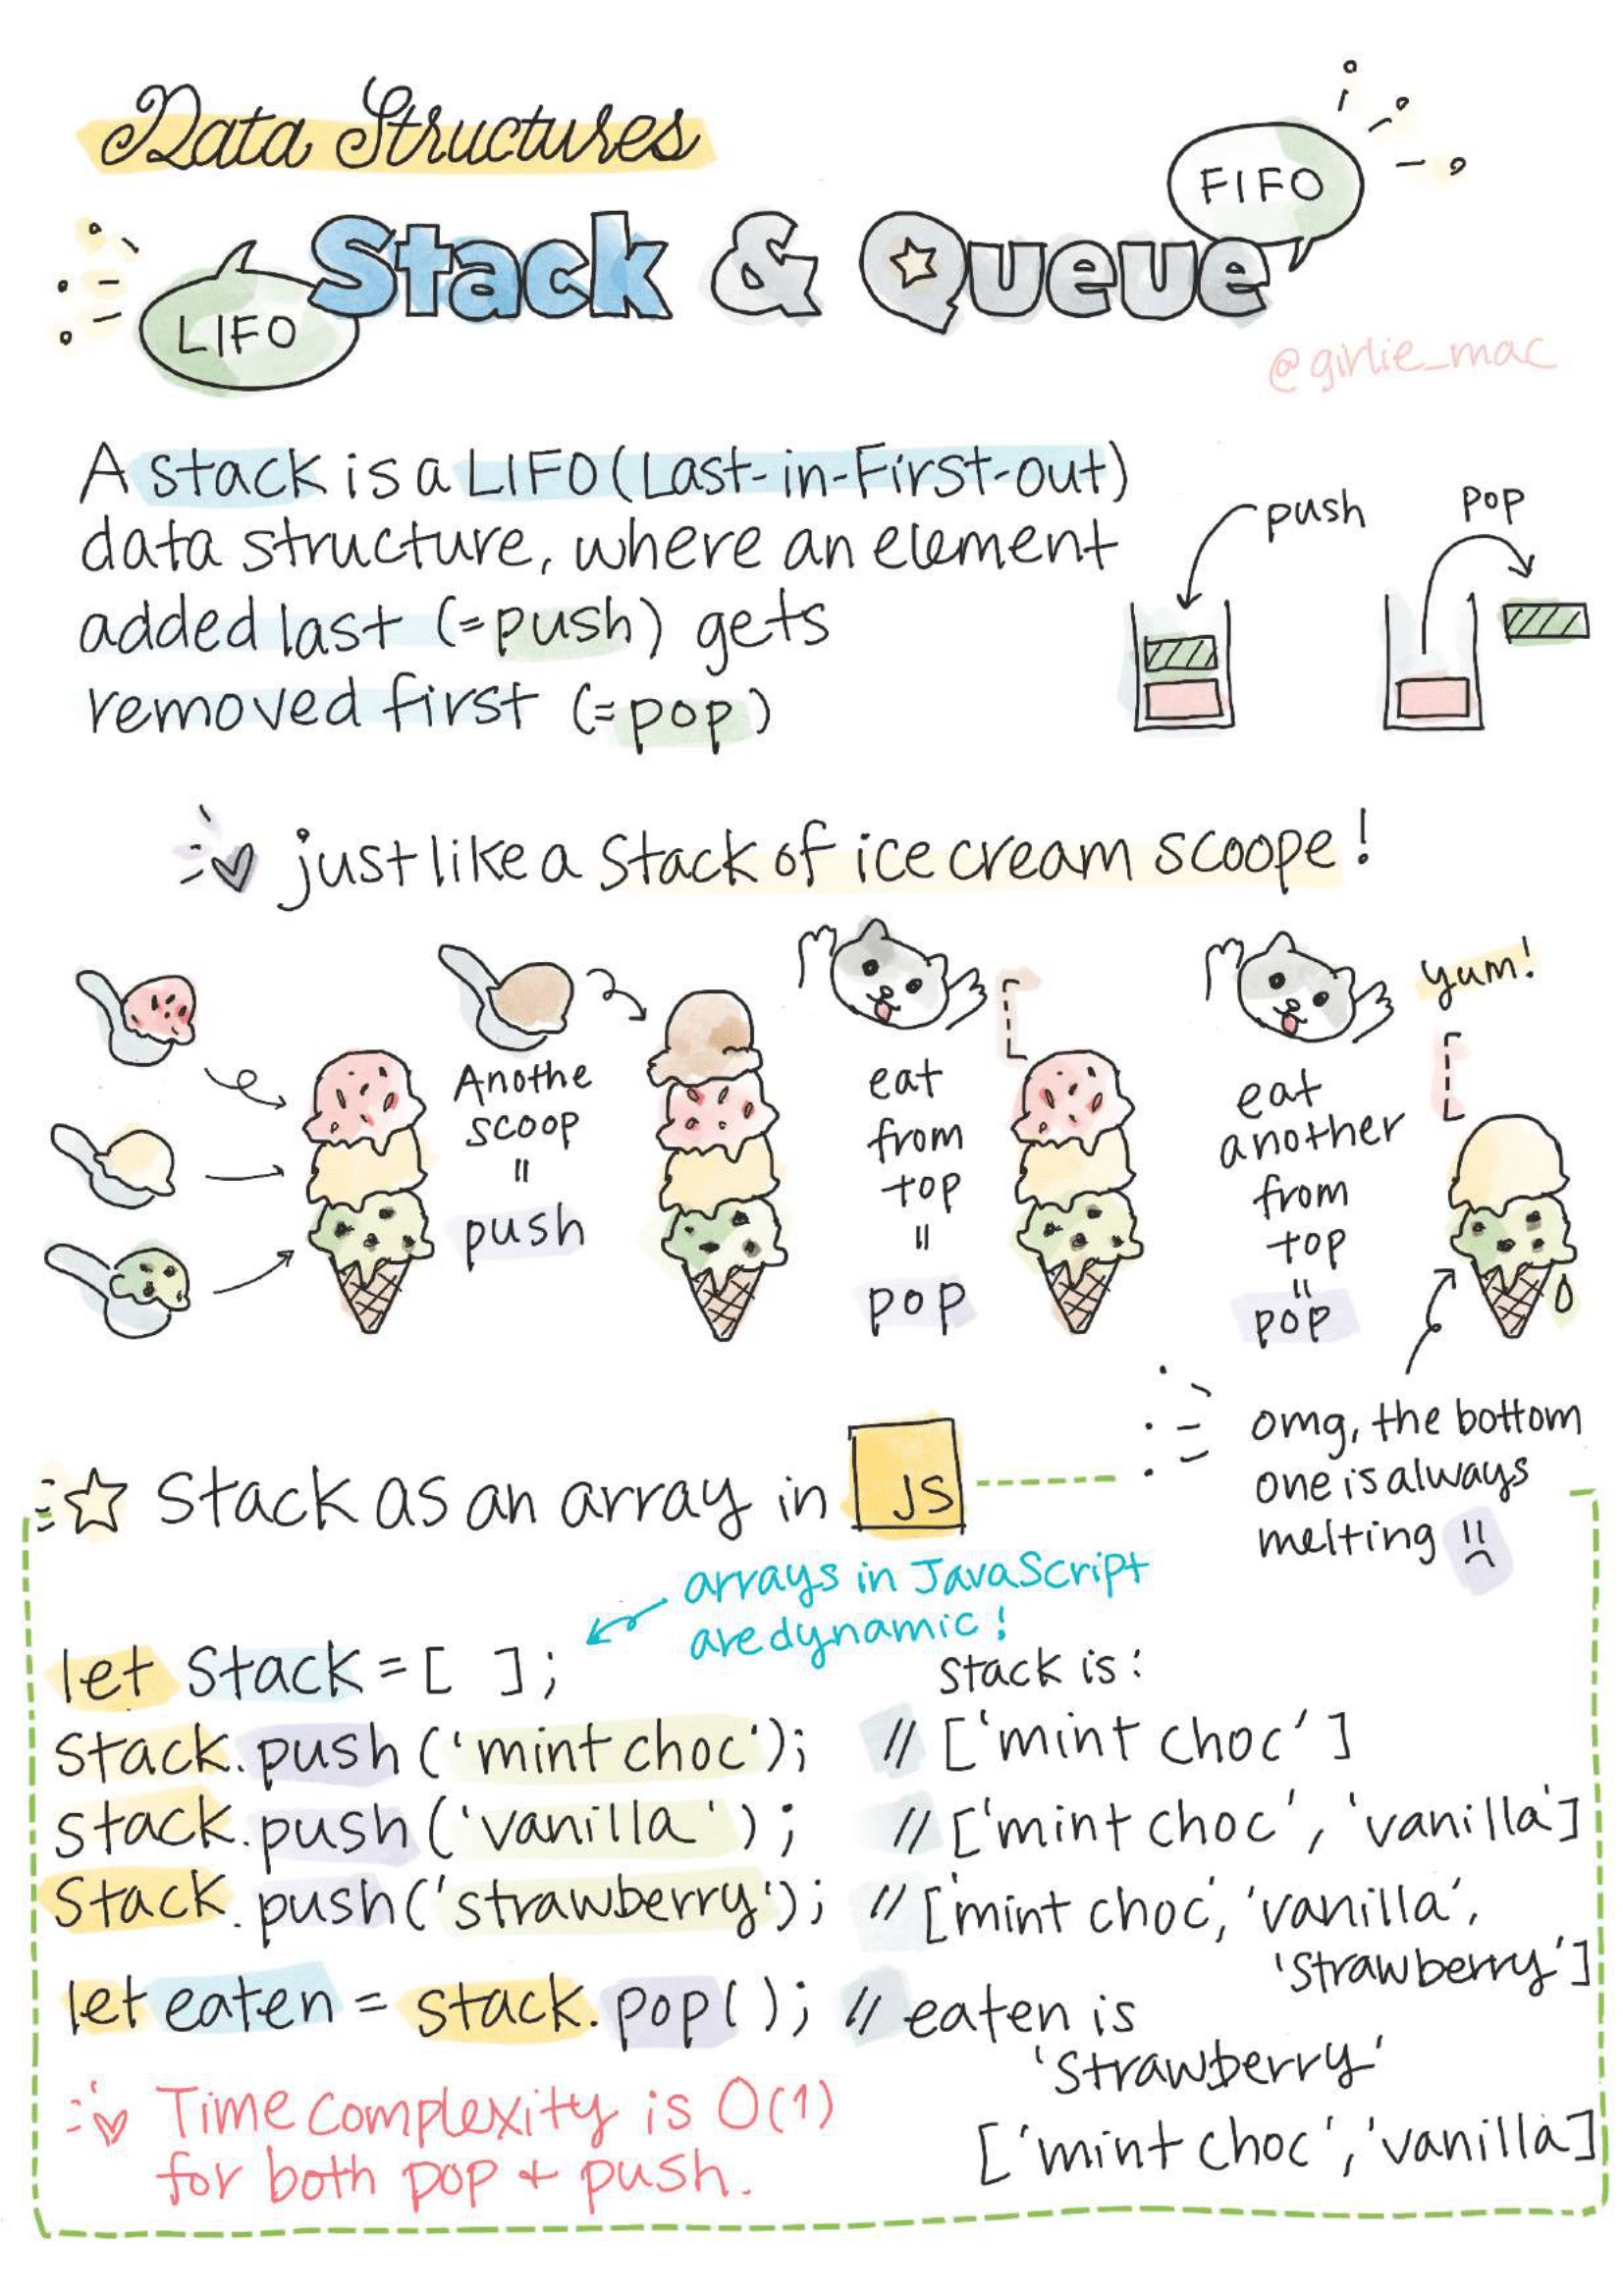 Data Structures
FIFO
Stack & Queue
LIFO
@girlie_mac
A stack is a LIFO (Last-in-First-out)
data structure, where an element
added last (=push) gets
removed first (=pop)
push
pop
just like a stack of ice cream scoope!
Anothe
scoop
=
push
eat
from
top
=
pop
eat
another
from
top
=
pop
yum!
omg, the bottom
one is always
melting !!
Stack as an array in JS
arrays in JavaScript
are dynamic!
let stack = [ ];
stack is:
stack.push('mint choc'); // ['mint choc']
stack.push('vanilla'); // ['mint choc', 'vanilla']
stack.push('strawberry'); // ['mint choc', 'vanilla',
'strawberry']
let eaten = stack.pop(); // eaten is
'strawberry'
['mint choc', 'vanilla]
Time complexity is O(1)
for both pop + push.